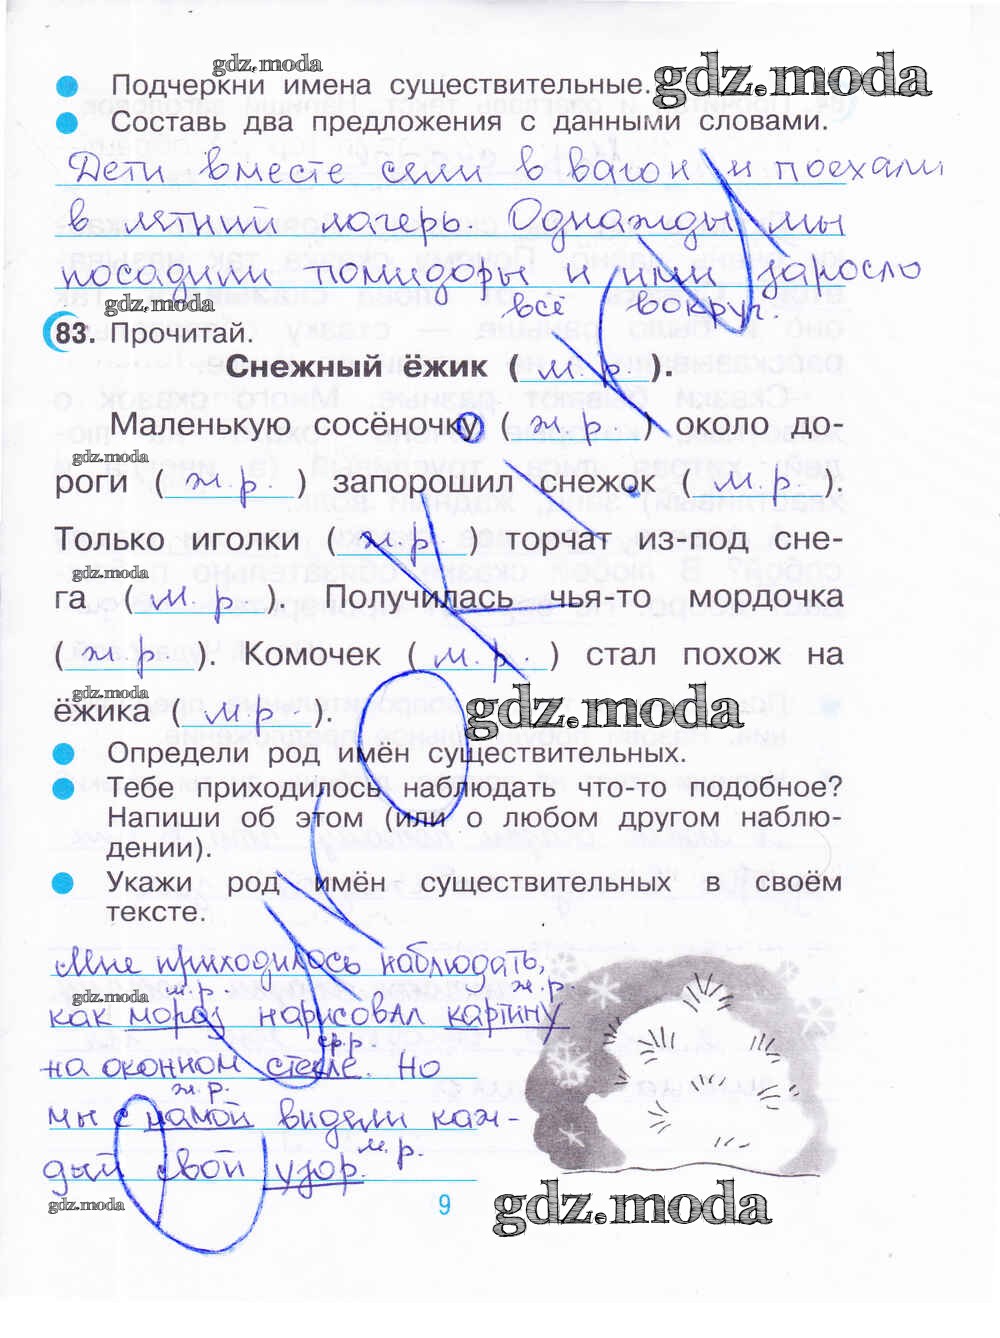 gdz.moda
Подчеркни имена существительные. gdz.moda
Составь два предложения с данными словами.
Дети вместе сели в вагон и поехали
в летний лагерь. Однажды мы
посадили помидоры и ими заросло
gdz.moda всё вокруг.
83. Прочитай.
Снежный ёжик (м. р.).
Маленькую сосёночку (ж. р.) около до-
gdz.moda
роги (ж. р.) запорошил снежок (м. р.).
Только иголки (ж. р.) торчат из-под сне-
gdz.moda
га (м. р.). Получилась чья-то мордочка
(ж. р.). Комочек (м. р.) стал похож на
gdz.moda gdz.moda
ёжика (м. р.).
Определи род имён существительных.
Тебе приходилось наблюдать что-то подобное?
Напиши об этом (или о любом другом наблю-
дении).
Укажи род имён существительных в своём
тексте.
Мне приходилось наблюдать,
gdz.moda м. р. ж. р.
как мороз нарисовал картину
ср. р.
на оконном стекле. Но
ж. р.
мы с мамой видели каж-
м. р.
дый свой узор.
gdz.moda 9 gdz.moda